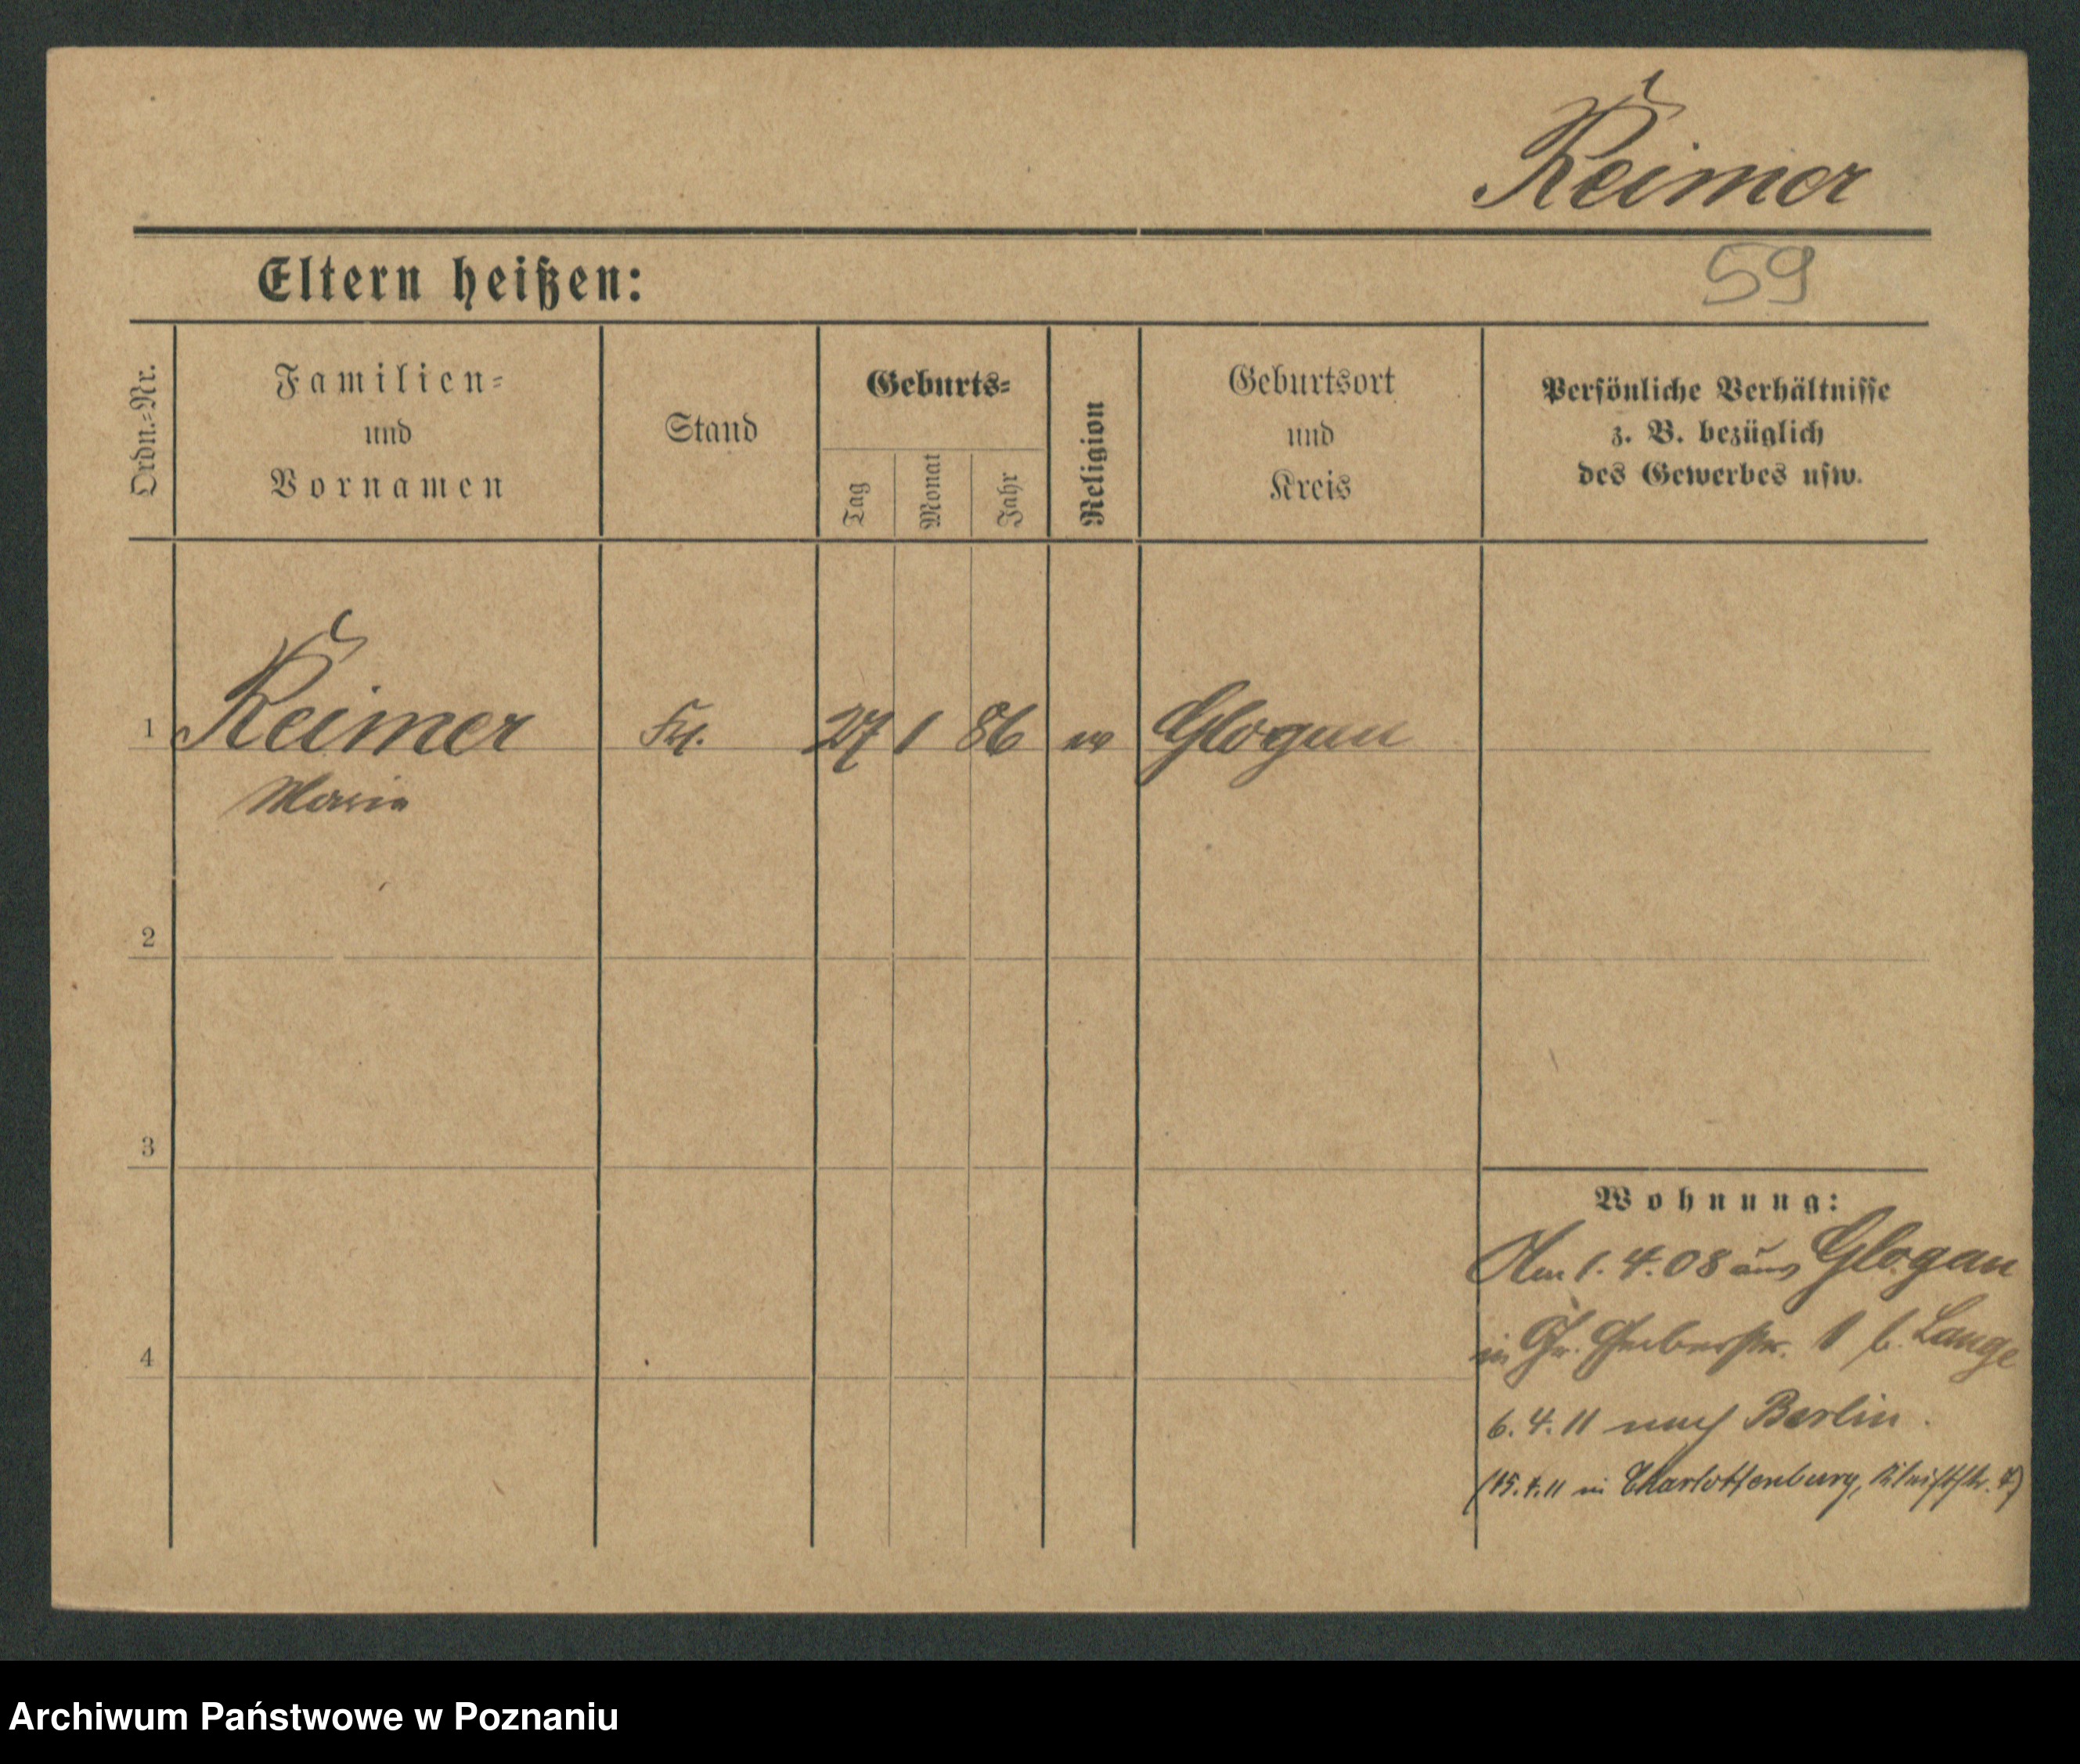 Reimer
Eltern heißen:
59
Ordn.-Nr.
Familien-
und
Vornamen
Stand
Geburts-
Tag
Monat
Jahr
Religion
Geburtsort
und
Kreis
Persönliche Verhältnisse
z. B. bezüglich
des Gewerbes usw.
1 Reimer Frl. 27 1 86 ev Glogau
Marie
2
3
Wohnung:
Am 1.4.08 aus Glogau
in Gr. Gerberstr. 1 b. Lange
4
6.4.11 nach Berlin.
(15.4.11 in Charlottenburg, Kleiststr. 7)
Archiwum Państwowe w Poznaniu